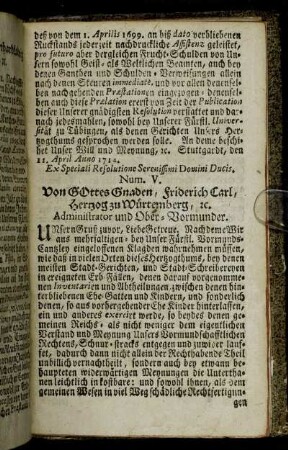 deß von dem 1. Aprilis 1699. an biß dato verbliebenen
Ruckstands jederzeit nachdruckliche Assistenz geleistet,
pro futuro aber dergleichen Frucht-Schulden von Un-
sern sowohl Geist- als Weltlichen Beamten, auch bey
denen Ganthen und Schulden-Verweisungen allein
nach denen Steuren immediatè, und vor allen denensel-
ben nachgehenden Præstationen eingezogen, denensel-
ben auch diese Prælation ererst von Zeit der Publication
dieser Unserer gnädigsten Resolution verstattet und dar-
nach jedesmahlen, sowohl bey Unserer Fürstl. Univer-
sität zu Tübingen, als denen Gerichten Unsers Her-
zogthums gesprochen werden solle. An deme beschi-
het Unser Will und Meynung, ꝛc. Stuttgardt, den
11. April Anno 1714.
Ex Speciali Resolutione Serenissimi Domini Ducis.
Num. V.
Von GOttes Gnaden, Friderich Carl,
Hertzog zu Würtemberg, ꝛc.
Administrator und Ober-Vormunder.
UNsern Gruß zuvor, Liebe Getreue. Nachdeme Wir
aus mehrältigen- bey Unser Fürstl. Vormunds-
Cantzley eingeloffenen Klagden wahrnehmen müssen,
wie daß in vielen Orten dieses Hertzogthums, bey denen
meisten Stadt-Gerichten, und Stadt-Schreibereyen
in ereignenden Erb-Fällen, denen daraus vorgenomme-
nen Inventarien und Abtheilungen, zwischen denen hin-
terbliebenen Ehe-Gatten und Kindern, und sonderlich
denen, so aus vorhergehender Ehe Kinder hinterlassen,
ein und anderes exercirt werde, so beydes denen ge-
meinen Reichs- als nicht weniger dem eigentlichen
Verstand und Meynung Unsers Vormundschafftlichen
Rechtens, Schnur-stracks entgegen und zuwider lauf-
fet, dadurch dann nicht allein der Rechthabende Theil
unbillich vernachtheilt, sondern auch bey etwann be-
haupteten widerwärtigen Meynungen die Unterthа-
nen leichtlich in kostbare: und sowohl ihnen, als dem
gemeinen Wesen in viel Weg schädliche Rechtfertigun-
gen